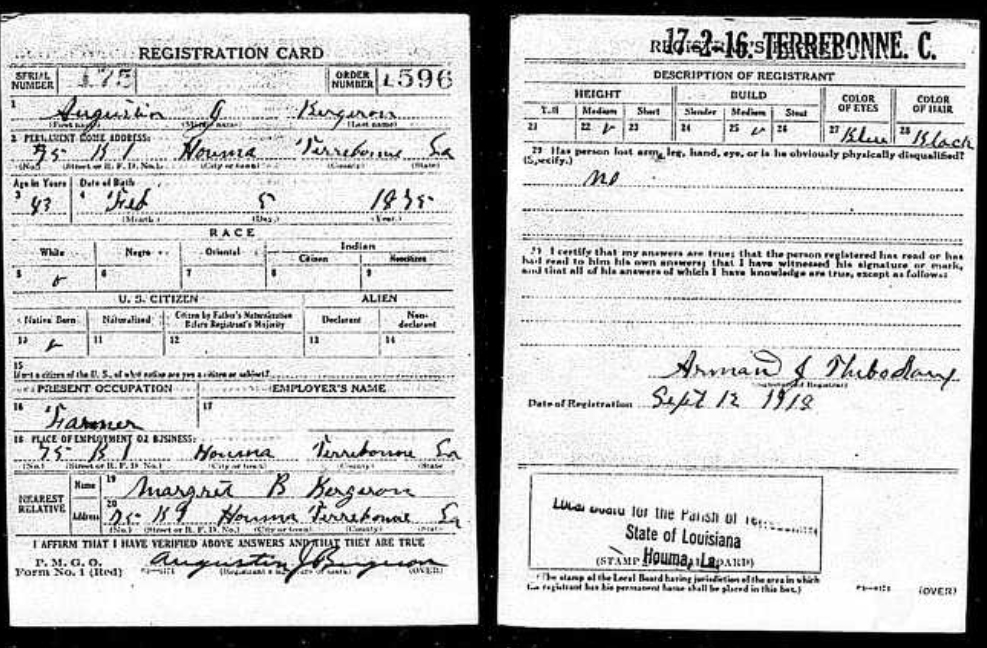 REGISTRATION CARD
SERIAL NUMBER 175 ORDER NUMBER 1596
1 Augustin J Bergeron
(First name) (Middle name) (Last name)
2 PERMANENT HOME ADDRESS:
75 R 1 Houma Terrebonne La
(No.) (Street or R. F. D. No.) (City or town) (County) (State)
Age in Years Date of Birth
3 43 4 Feb 5 1875
(Month) (Day) (Year)
RACE
White Negro Oriental Indian
Citizen Noncitizen
5 v 6 7 8 9
U. S. CITIZEN ALIEN
Native Born Naturalized Citizen by Father's Naturalization Before Registrant's Majority Declarant Non-declarant
10 v 11 12 13 14
15
If not a citizen of the U. S., of what nation are you a citizen or subject?
PRESENT OCCUPATION EMPLOYER'S NAME
16 Farmer 17
18 PLACE OF EMPLOYMENT OR BUSINESS:
75 R 1 Houma Terrebonne La
(No.) (Street or R. F. D. No.) (City or town) (County) (State
NEAREST RELATIVE Name 19 Margret B Bergeron
Address 20 75 Houma Terrebonne La
(No.) (Street or R. F. D. No.) (City or town) (County) (State
I AFFIRM THAT I HAVE VERIFIED ABOVE ANSWERS AND THAT THEY ARE TRUE
P. M. G. O.
Form No. 1 (Red) Augustin J Bergeron
(Registrant's signature or mark) (OVER)
REGISTRAR'S REPORT
17-2-16. TERREBONNE. C.
DESCRIPTION OF REGISTRANT
HEIGHT BUILD COLOR OF EYES COLOR OF HAIR
Tall Medium Short Slender Medium Stout
21 22 v 23 24 25 v 26 27 Blue 28 Black
29 Has person lost arm, leg, hand, eye, or is he obviously physically disqualified?
(Specify.)
no
30 I certify that my answers are true; that the person registered has read or has
had read to him his own answers; that I have witnessed his signature or mark,
and that all of his answers of which I have knowledge are true, except as follows:
Arman J Thibodaux
(Signature of Registrar)
Date of Registration Sept 12 1918
Local Board for the Parish of Terrebonne
State of Louisiana
Houma, La.
(STAMP OF LOCAL BOARD)
(The stamp of the Local Board having jurisdiction of the area in which
the registrant has his permanent home shall be placed in this box.)
(OVER)